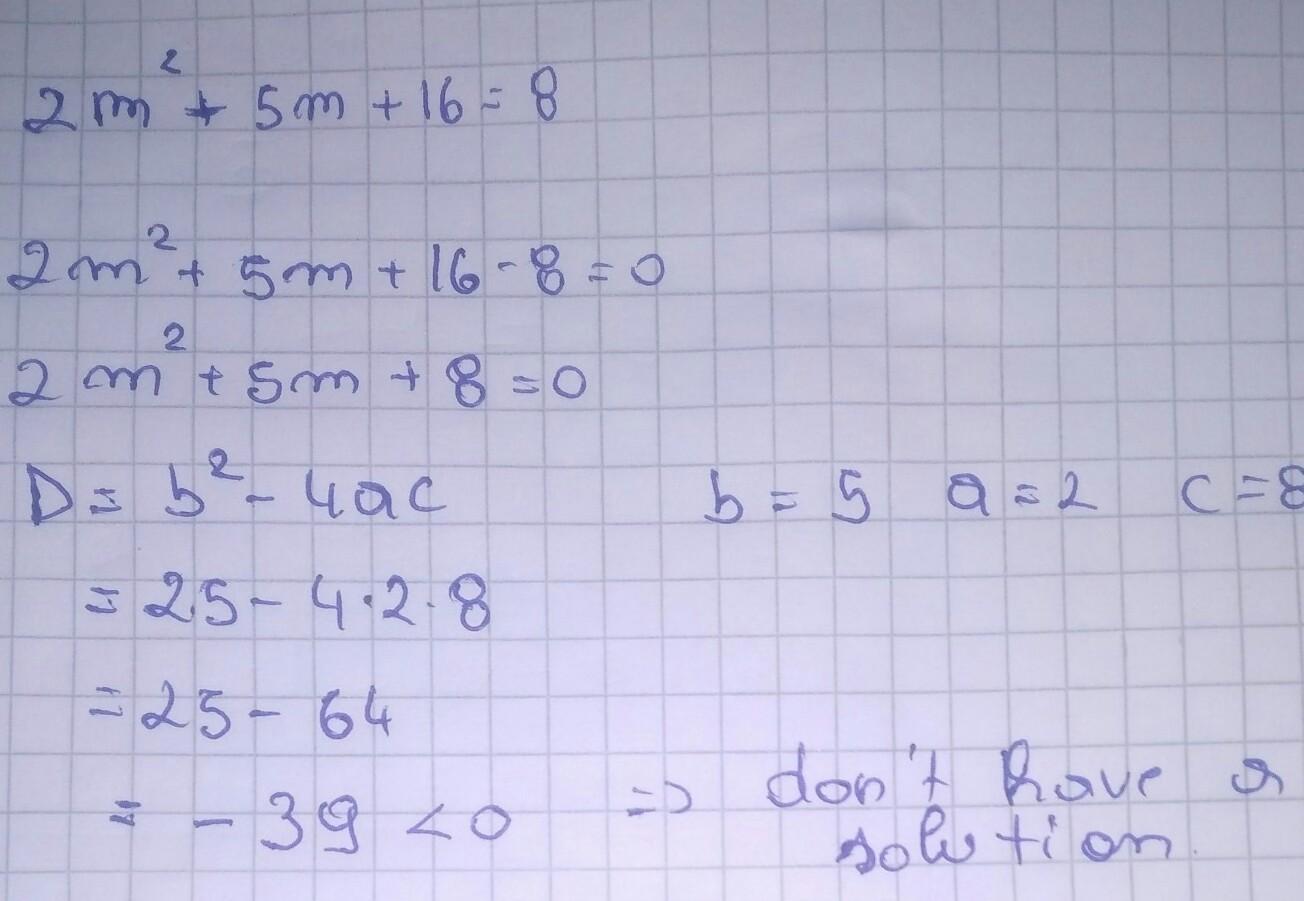 2m² + 5m + 16 = 8
2m² + 5m + 16 - 8 = 0
2m² + 5m + 8 = 0
D = b² - 4ac b = 5 a = 2 c = 8
= 25 - 4·2·8
= 25 - 64
= - 39 < 0 => don't have a
solution.